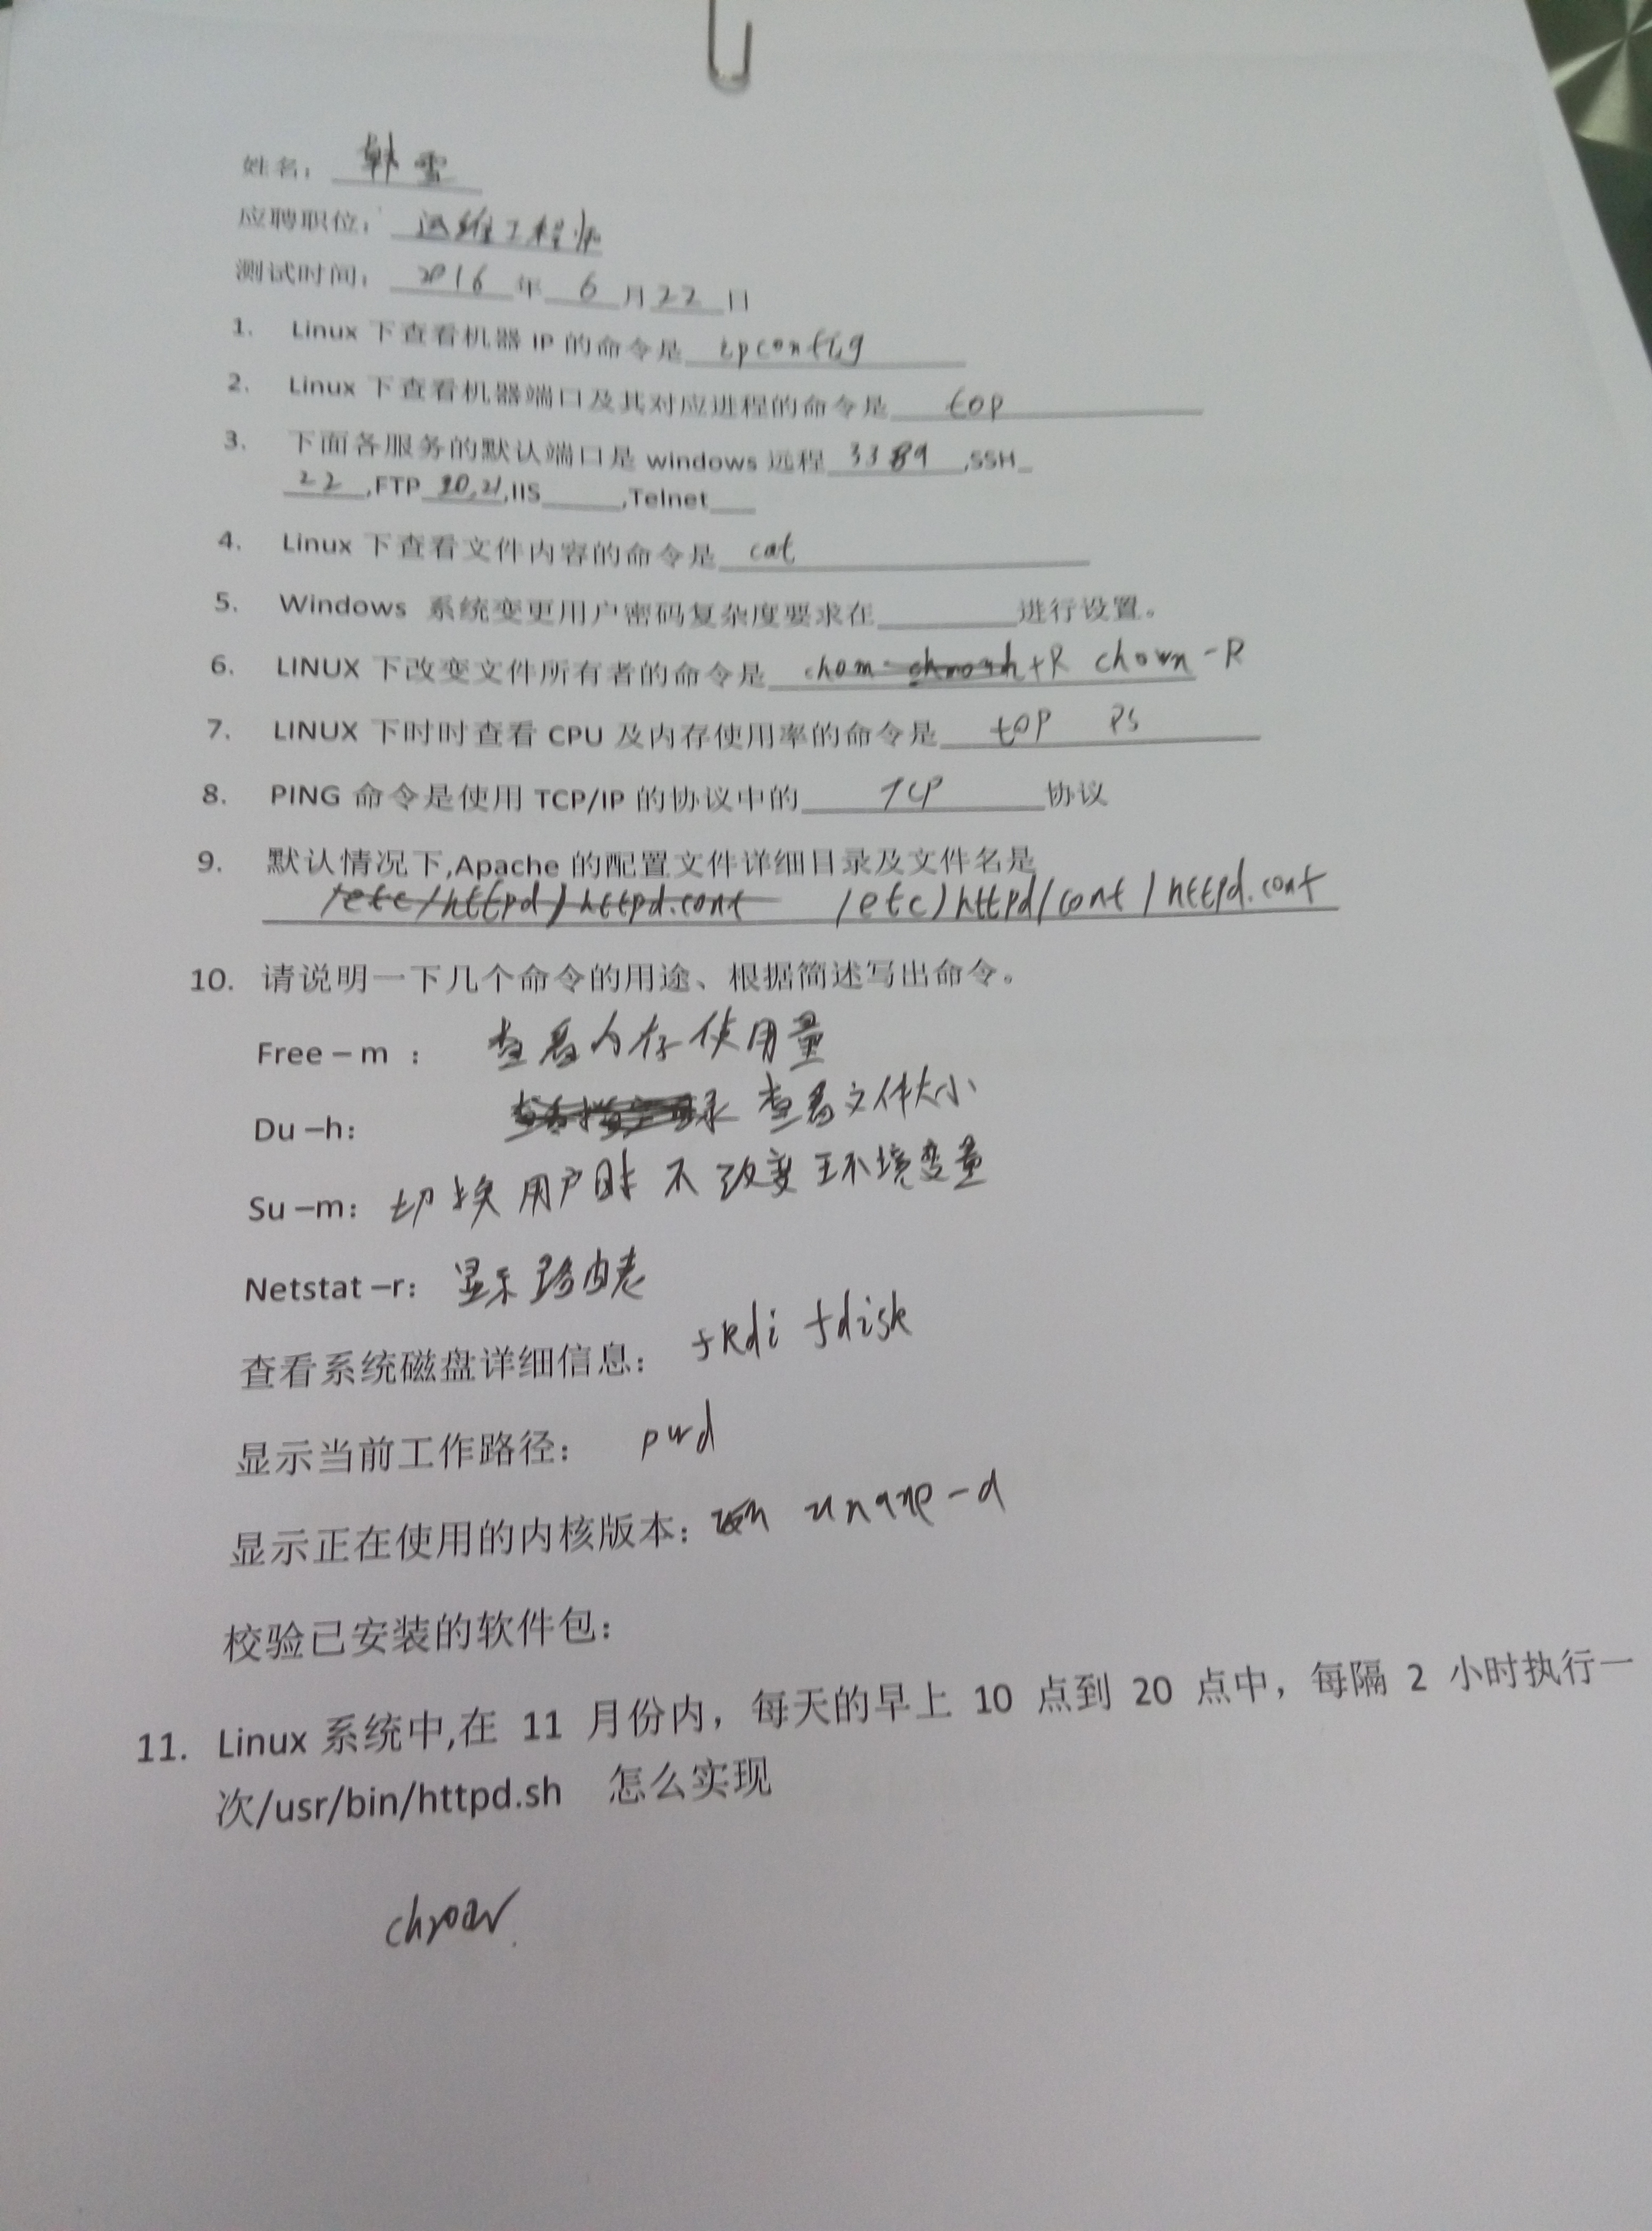 姓名： 韩雪
应聘职位： 运维工程师
测试时间： 2016 年 6 月 22 日
1. Linux 下查看机器 IP 的命令是 ipconfig
2. Linux 下查看机器端口及其对应进程的命令是 top
3. 下面各服务的默认端口是 windows 远程 3389 ,SSH
22 ,FTP 20,21,IIS______,Telnet___
4. Linux 下查看文件内容的命令是 cat
5. Windows 系统变更用户密码复杂度要求在________进行设置。
6. LINUX 下改变文件所有者的命令是 +R chown -R
7. LINUX 下时时查看 CPU 及内存使用率的命令是 top ps
8. PING 命令是使用 TCP/IP 的协议中的 TCP 协议
9. 默认情况下,Apache 的配置文件详细目录及文件名是
/etc/httpd/httpd.conf /etc/httpd/conf/httpd.conf
10. 请说明一下几个命令的用途、根据简述写出命令。
Free – m ： 查看内存使用量
Du –h： 查看文件大小
Su –m： 切换用户时不改变环境变量
Netstat –r： 显示路由表
查看系统磁盘详细信息： fdisk
显示当前工作路径： pwd
显示正在使用的内核版本： uname -a
校验已安装的软件包：
11. Linux 系统中,在 11 月份内，每天的早上 10 点到 20 点中，每隔 2 小时执行一
次/usr/bin/httpd.sh 怎么实现